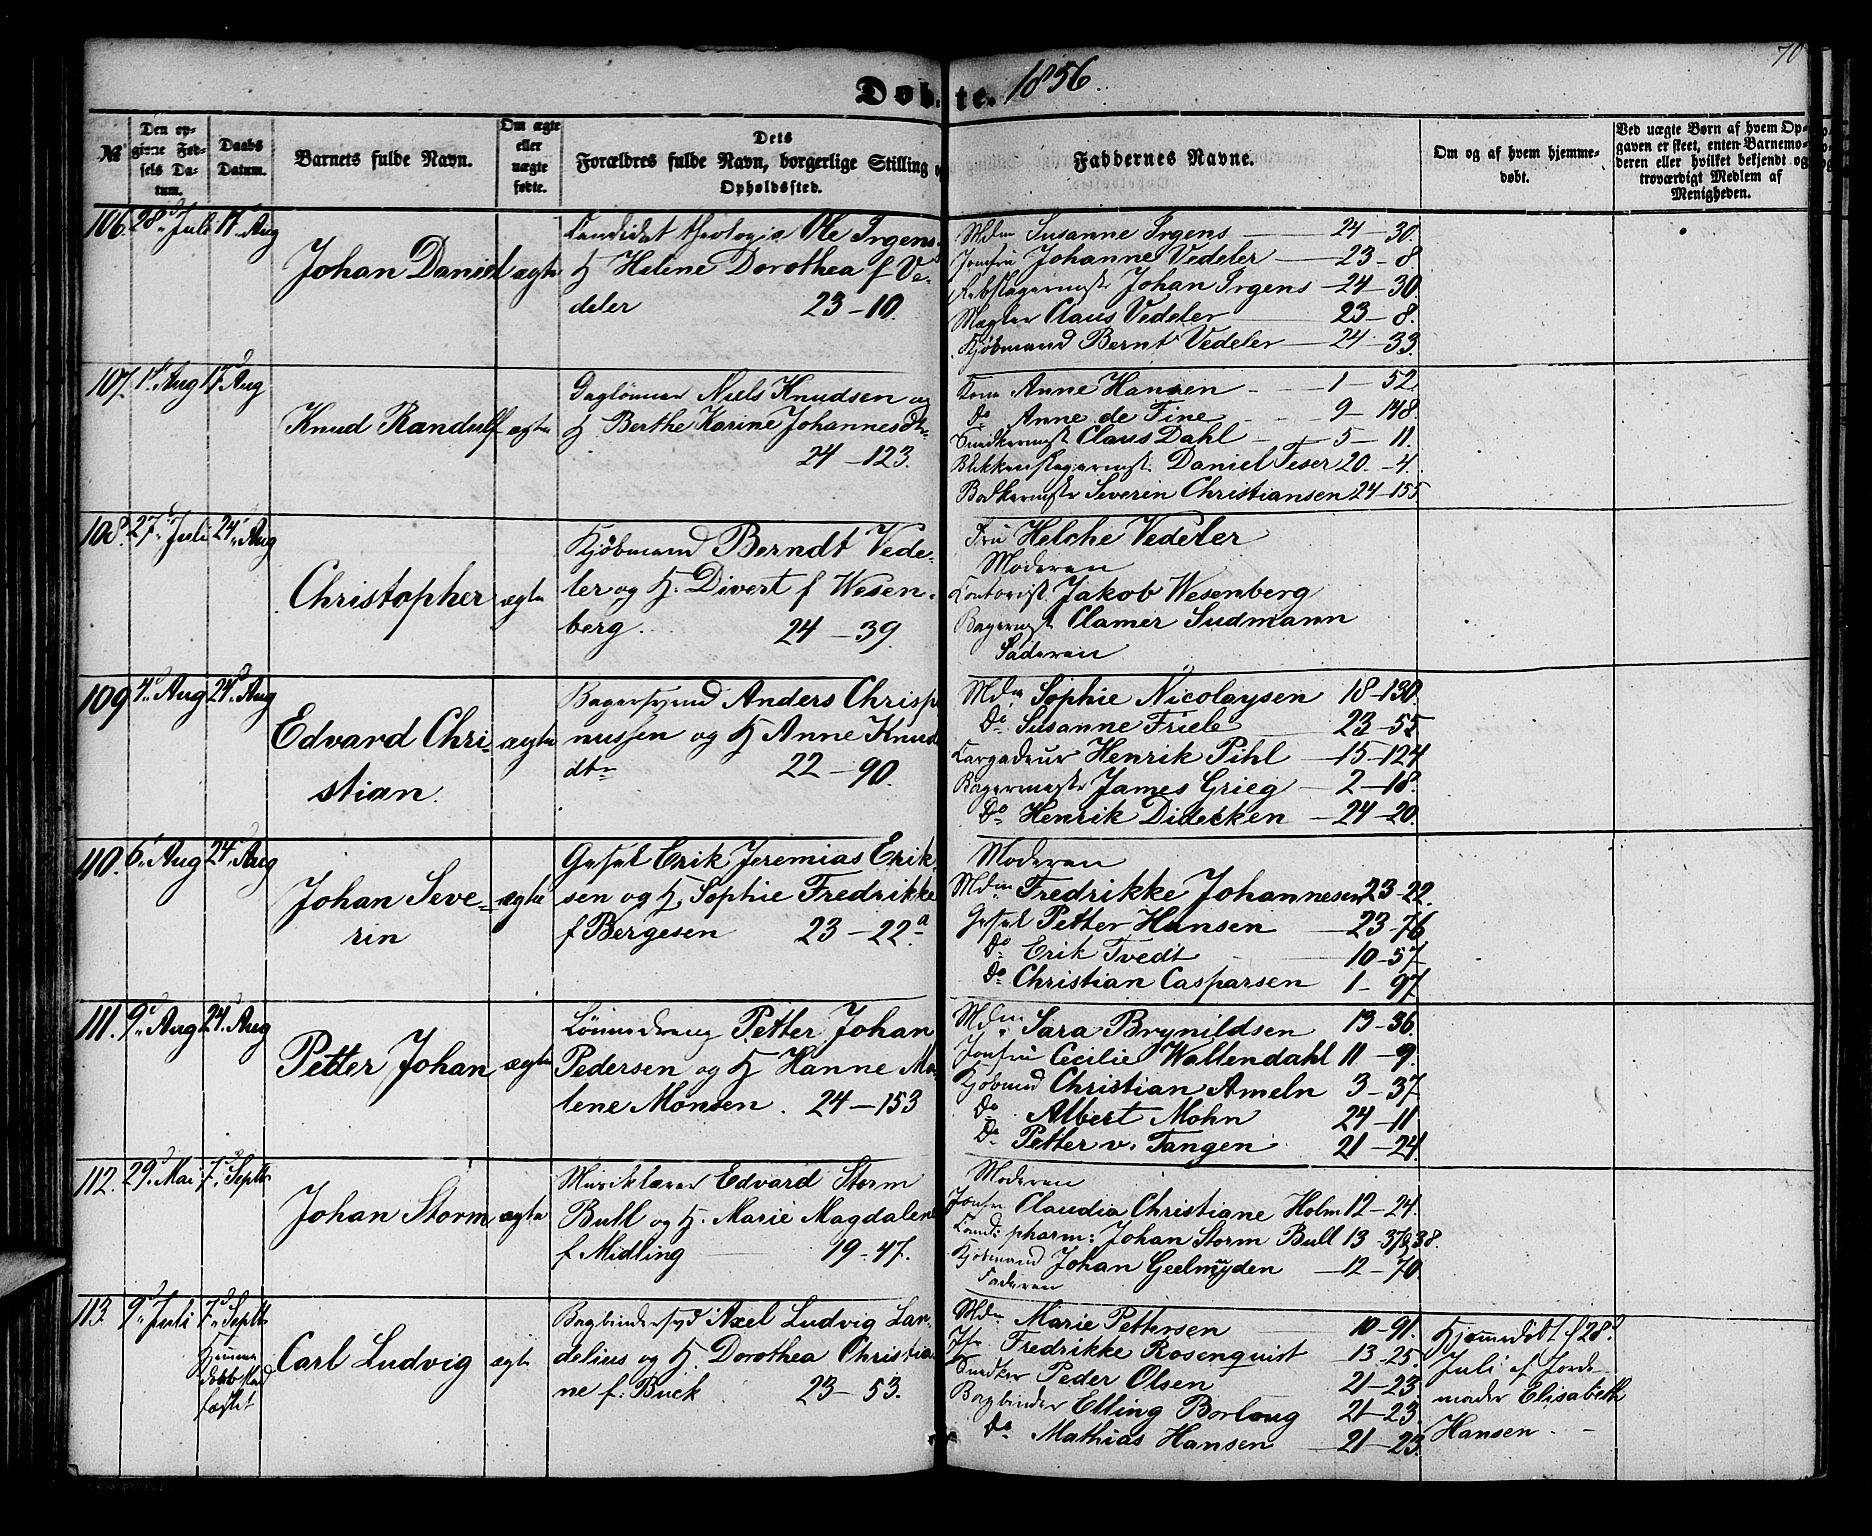 70
Døbte. 1856.
№
Den opgivne Fødsels Datum.
Daabs Datum.
Barnets fulde Navn.
Om ægte eller uægte fødte.
Dets Forældres fulde Navn, borgerlige Stilling og Opholdssted.
Faddernes Navne.
Om og af hvem hjemmedøbt.
Ved uægte Børn af hvem Opgaven er skeet, enten Barnemoderen eller hvilket bekjendt og troværdigt Medlem af Menigheden.
106. 28d Juli 17 Aug
Johan Daniel ægte
Candidat theologia Ole Irgens
H Helene Dorothea f Ve-
deler 23-10.
Mdm Susanne Irgens 24-30.
Jomfru Johanne Vedeler 23-8
Rebslagermstr Johan Irgens 24-30.
Mægler Claus Vedeler 23-8.
Kjøbmand Bernt Vedeler 24-33.
107. 1d Aug 17d Aug
Knud Randulf ægte
Daglønner Niels Knudsen og
H. Berthe Karine Johannesdtr
24-123.
Kone Anne Hansen 1-52
Do Anne de Fine 9-148.
Snedkermst Claus Dahl 5-11.
Blikkenslagermst. Daniel Feser 20-4.
Bødkermstr Severin Christiansen 24-155
108. 27d Juli 24 Aug
Christopher ægte
Kjøbmand Berndt Vede-
ler og H. Divert f Wesen-
berg. 24-39
Fru Helche Vedeler
Moderen
Contorist Jakob Wesenberg
Bagermst Clamer Sudmann
Faderen
109 4d Aug 24d Aug
Edvard Chri- ægte
stian.
Bagersvend Anders Chrisp
nussen og H Anne Knud
dtr 22-90.
Mdm Sophie Nicolaysen 18-130.
Do Susanne Friele 23-55
Cargadeur Henrik Pihl 15-124
Bagermestr James Grieg 2-18.
Do Henrik Didecken 24-20.
110. 6 Aug 24d Aug
Johan Seve- ægte
rin
Gesel Erik Jeremias Erik
sen og H. Sophie Fredrikke
f Bergesen 23-22a
Moderen
Mdm Fredrikke Johannesen 23-22.
Gesel Petter Hansen 23-76
Do Erik Tvedt 10-57
Do Christian Casparsen 1-97
111. 9d Aug 24d Aug
Petter Johan ægte
Petter Johan
Pedersen og H Hanne Ma-
lene Monsen. 24-153
Mdm Sara Brynildsen 13-36
Jomfru Cecilie Wallendahl 11-9.
Kjøbmd Christian Ameln 3-37
Do Albert Mohn 24-11
Do Petter v. Tangen 21-24.
112. 29d Mai 7d Septb
Johan Storm ægte
Musiklærer Edvard Storm
Bull og H. Marie Magdalene
f Midling 19-47.
Moderen
Jomfr Claudia Christiane Holm 12-24.
Candi pharm: Johan Storm Bull 13-37&38.
Kjøbmand Johan Geelmuyden 12-70
Faderen
113. 9d Juli 7d Septb
Hjemme
Carl Ludvig ægte
Bogbindersvd Axel Ludvig Lan-
delius og H. Dorothea Christia-
ne f: Buck 23-53.
Mdm Marie Pettersen 10-91.
Jfr Fredrikke Rosenquist 13-25.
Snedker Peder Olsen 21-23
Bogbinder Elling Borlaug 21-23.
Do Mathias Hansen 21-23.
Hjemmedøbt 28d
Juli af Jorde-
moder Elisabeth
Hansen.